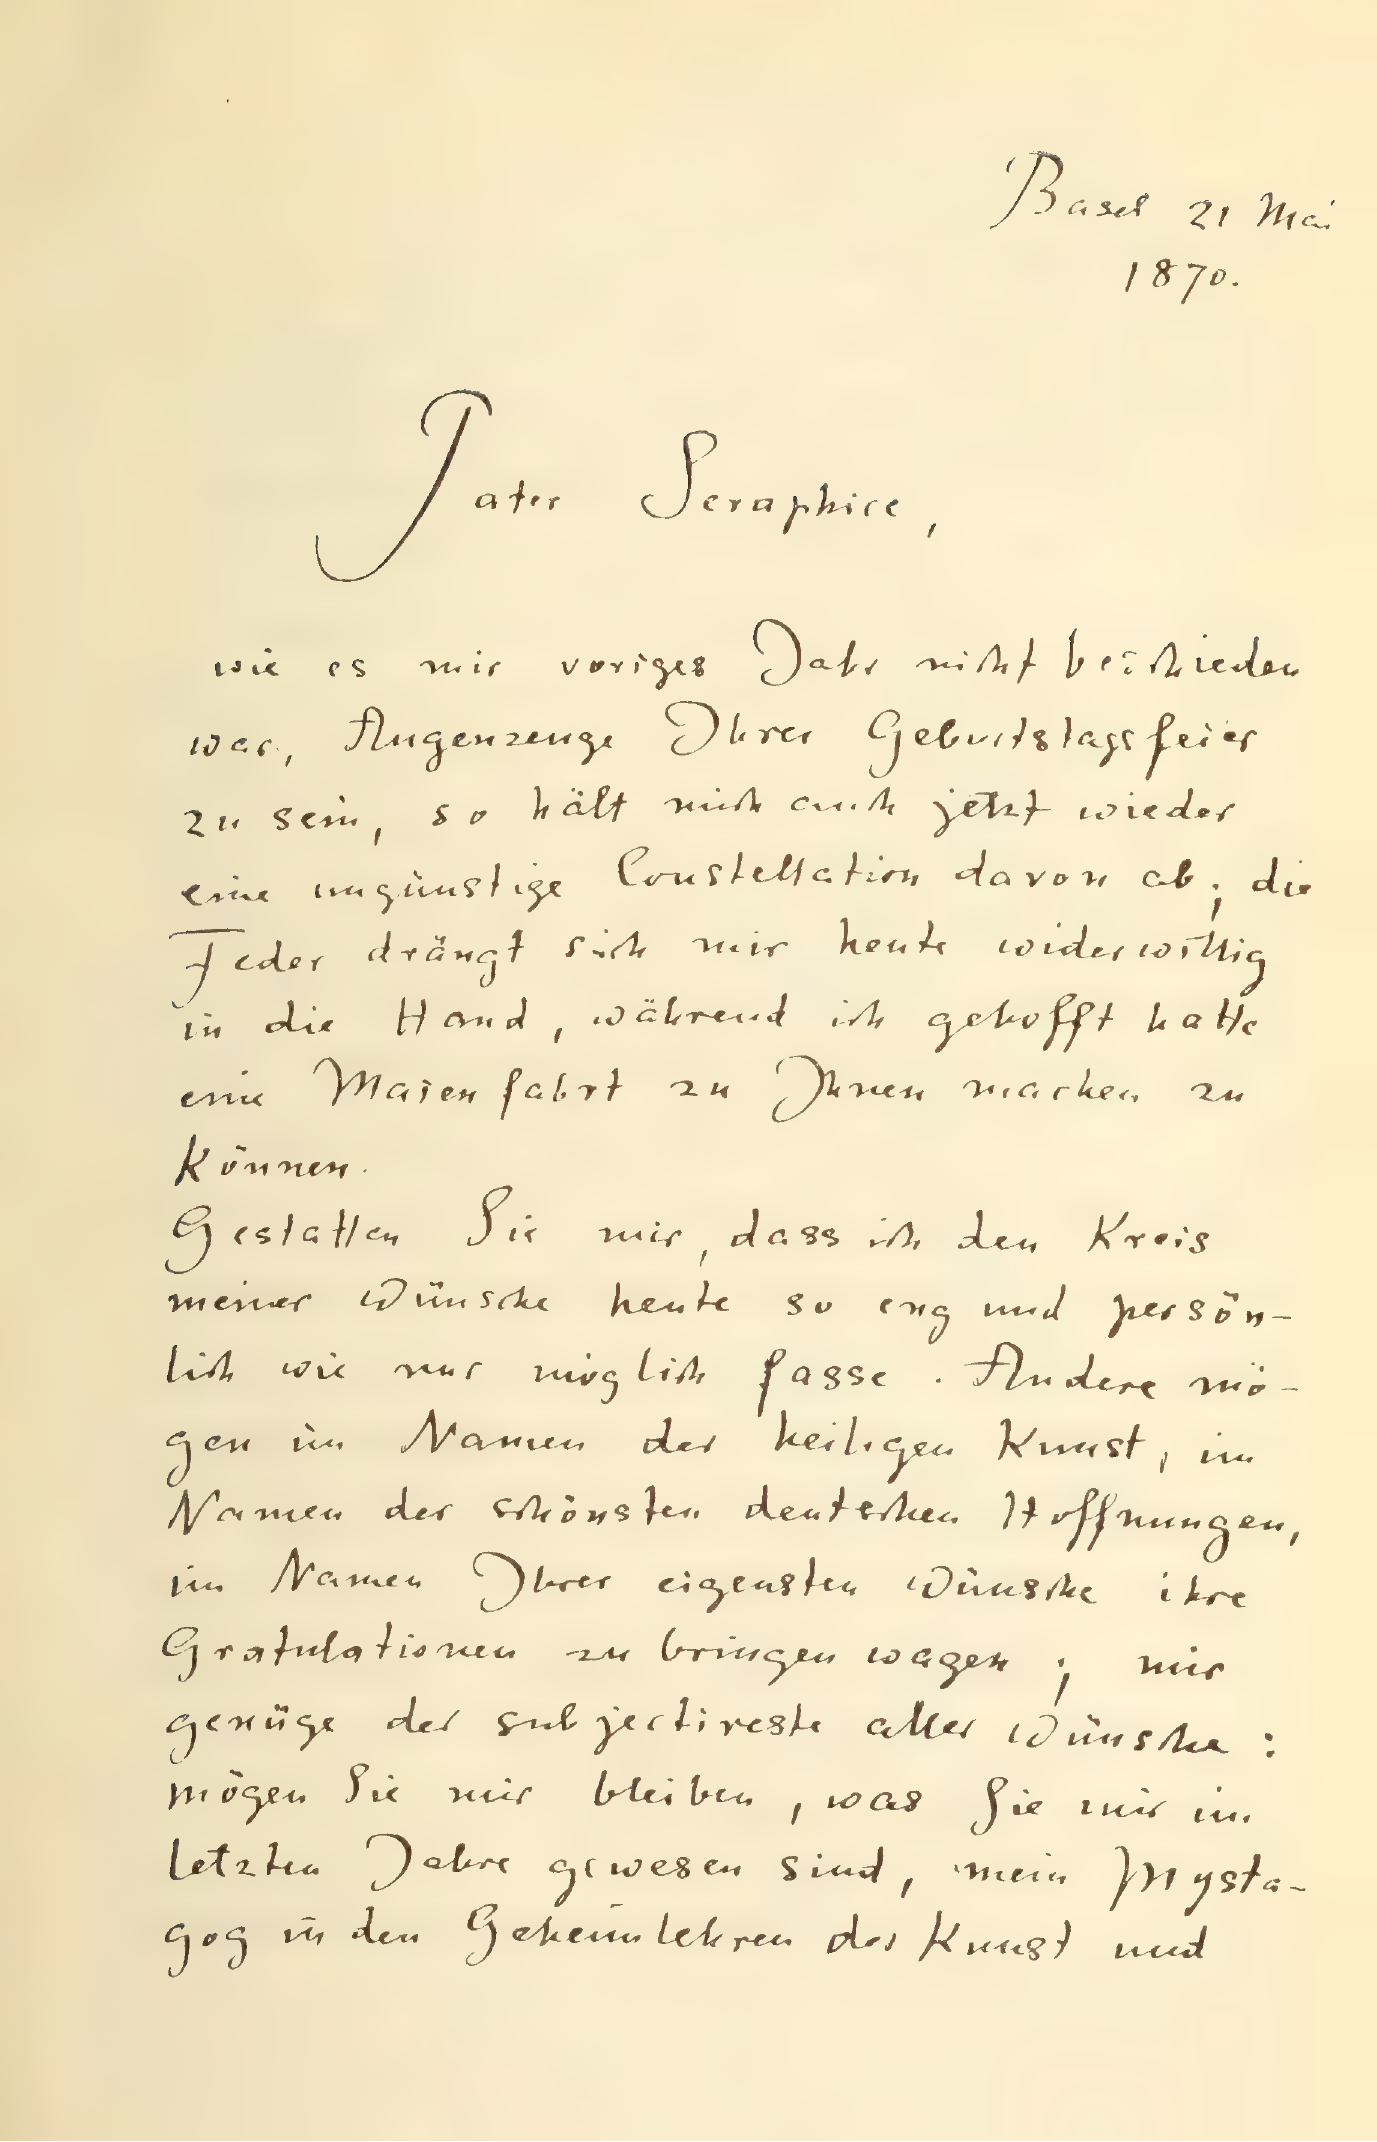 Basel 21 Mai
1870.
Pater Seraphice,
wie es mir voriges Jahr nicht beschieden
war, Augenzeuge Ihrer Geburtstagsfeier
zu sein, so hält mich auch jetzt wieder
eine ungünstige Constellation davon ab; die
Feder drängt sich mir heute widerwillig
in die Hand, während ich gehofft hatte
eine Maienfahrt zu Ihnen machen zu
können.
Gestatten Sie mir, dass ich den Kreis
meiner Wünsche heute so eng und persön-
lich wie nur möglich fasse. Andere mö-
gen im Namen der heiligen Kunst, im
Namen der schönsten deutschen Hoffnungen,
im Namen Ihrer eigensten Wünsche ihre
Gratulationen zu bringen wagen; mir
genüge der subjectivste aller Wünsche:
mögen Sie mir bleiben, was Sie mir im
letzten Jahre gewesen sind, mein Mysta-
gog in den Geheimlehren der Kunst und